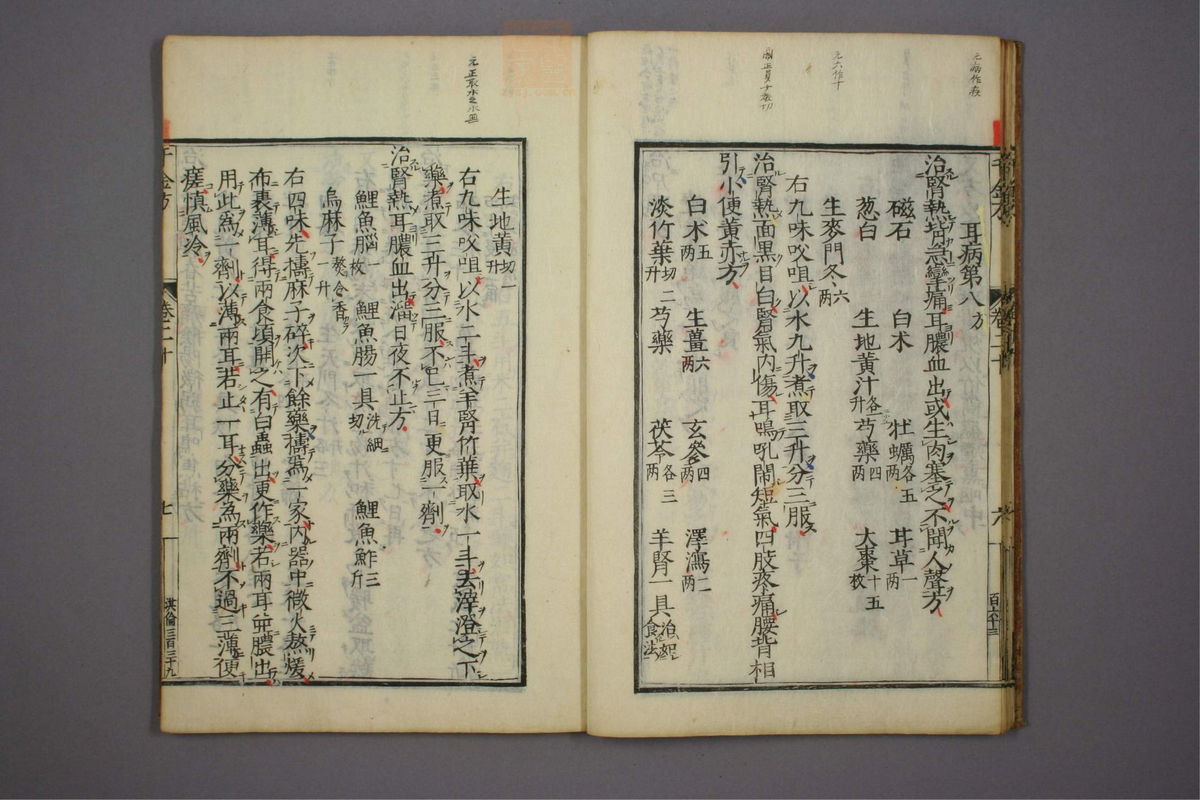 元病作疾
元六作十
耳病第八方
治腎熱背急攣痛耳膿血出或生肉塞之不聞人聲方
磁石 白朮 牡蠣各五兩 耳草一兩
葱白 生地黃汁各升 芍藥四兩 大棗十五枚
生麥門冬六兩
右九味㕮咀以水九升煮取三升分三服
治腎熱面黑目白腎氣內傷耳鳴吼鬧短氣四肢疼痛腰背相
引小便黃赤方
白朮五兩 生薑六兩 玄參四兩 澤瀉二兩
淡竹葉切二升 芍藥 茯苓各三兩 羊腎一具治如食法
生地黃切一升
右九味㕮咀以水二斗煮羊腎竹葉取水一斗去滓澄之下
藥煮取三升分三服不已三日更服一劑
治腎熱耳膿血出溜日夜不止方
鯉魚腦一枚 鯉魚腸一具洗細切 鯉魚鮓三斤
烏麻子熬令香一升
右四味先擣麻子碎次下餘藥擣為一家內器中微火熬煖
布裹薄耳得兩食頃開之有白蟲出更作藥若兩耳並膿出
用此為一劑以薄兩耳若止一耳分藥為兩劑不過三薄便
瘥慎風冷
千金方 卷二十 七